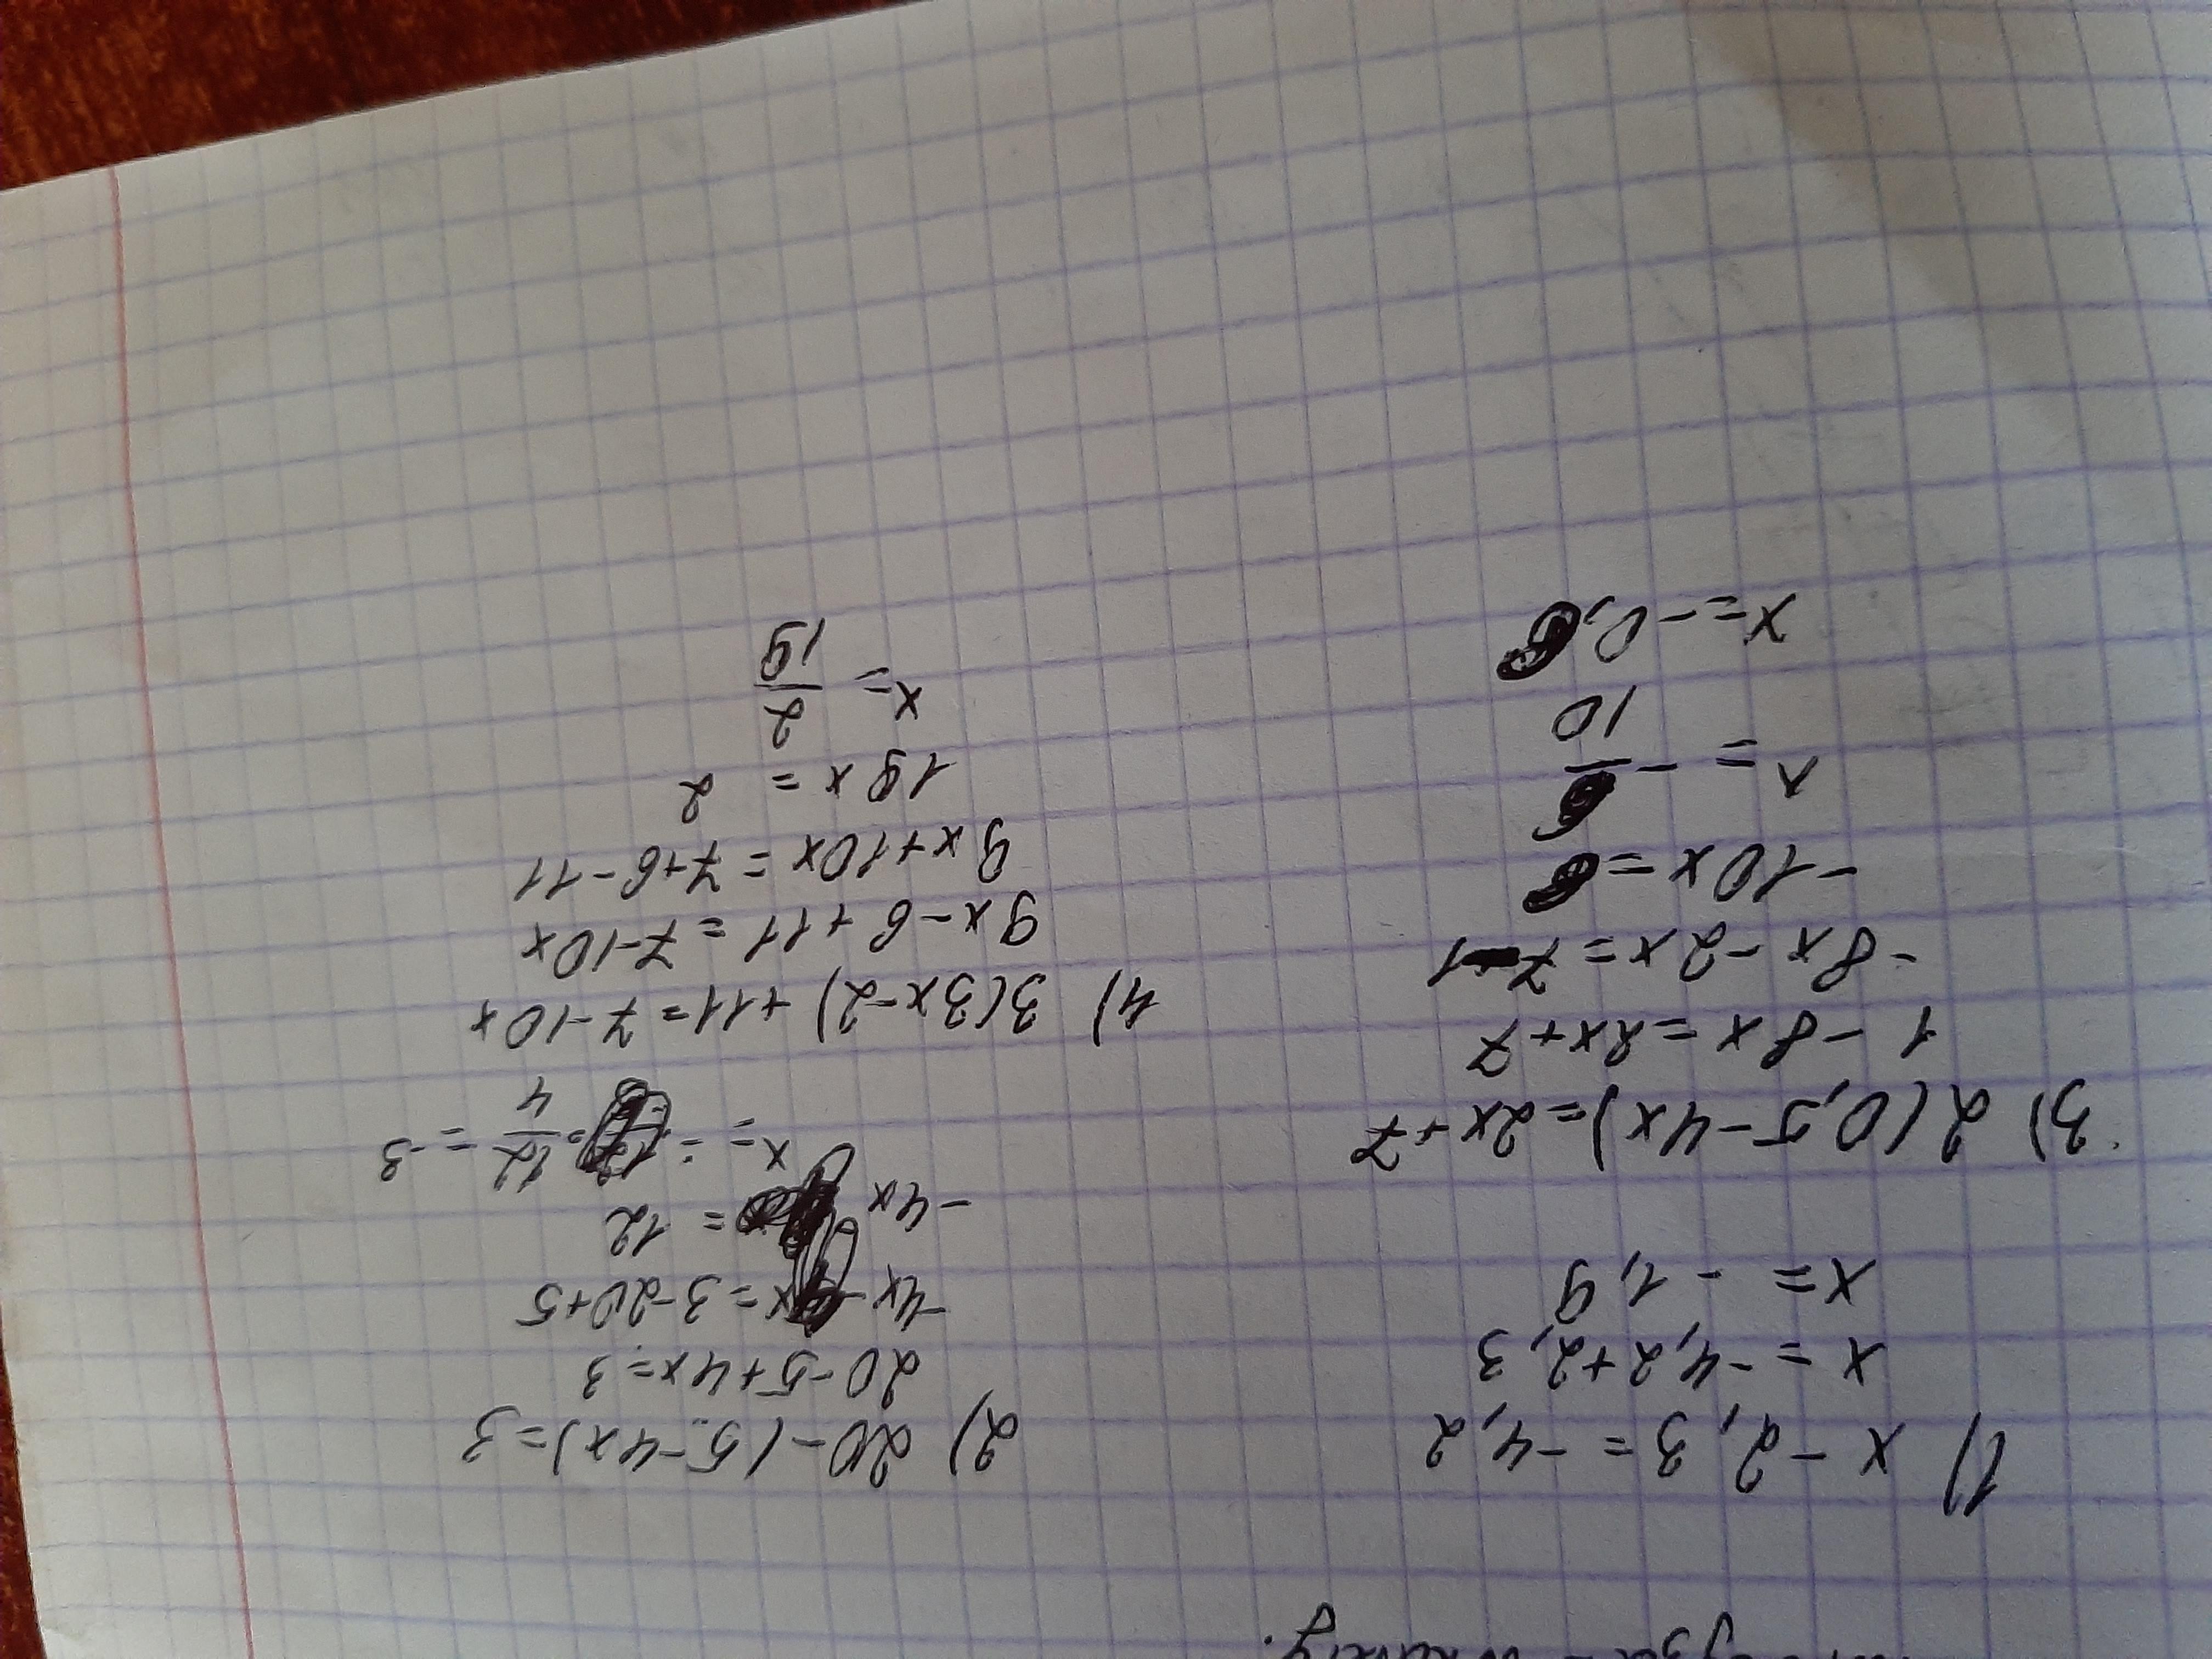 1) x - 2,3 = -4,2
x = -4,2+2,3
x = - 1,9
2) 20-(5-4x)=3
20-5+4x=3
-4x = 3-20+5
-4x = 12
x = 12/4 = -3
3) 2(0,5-4x)=2x+7
1 -8x =2x+7
-8x-2x=7-1
-10x=6
x = -6/10
x=-0,6
4) 3(3x-2)+11=7-10x
9x-6+11=7-10x
9x+10x=7+6-11
19x = 2
x= 2/19